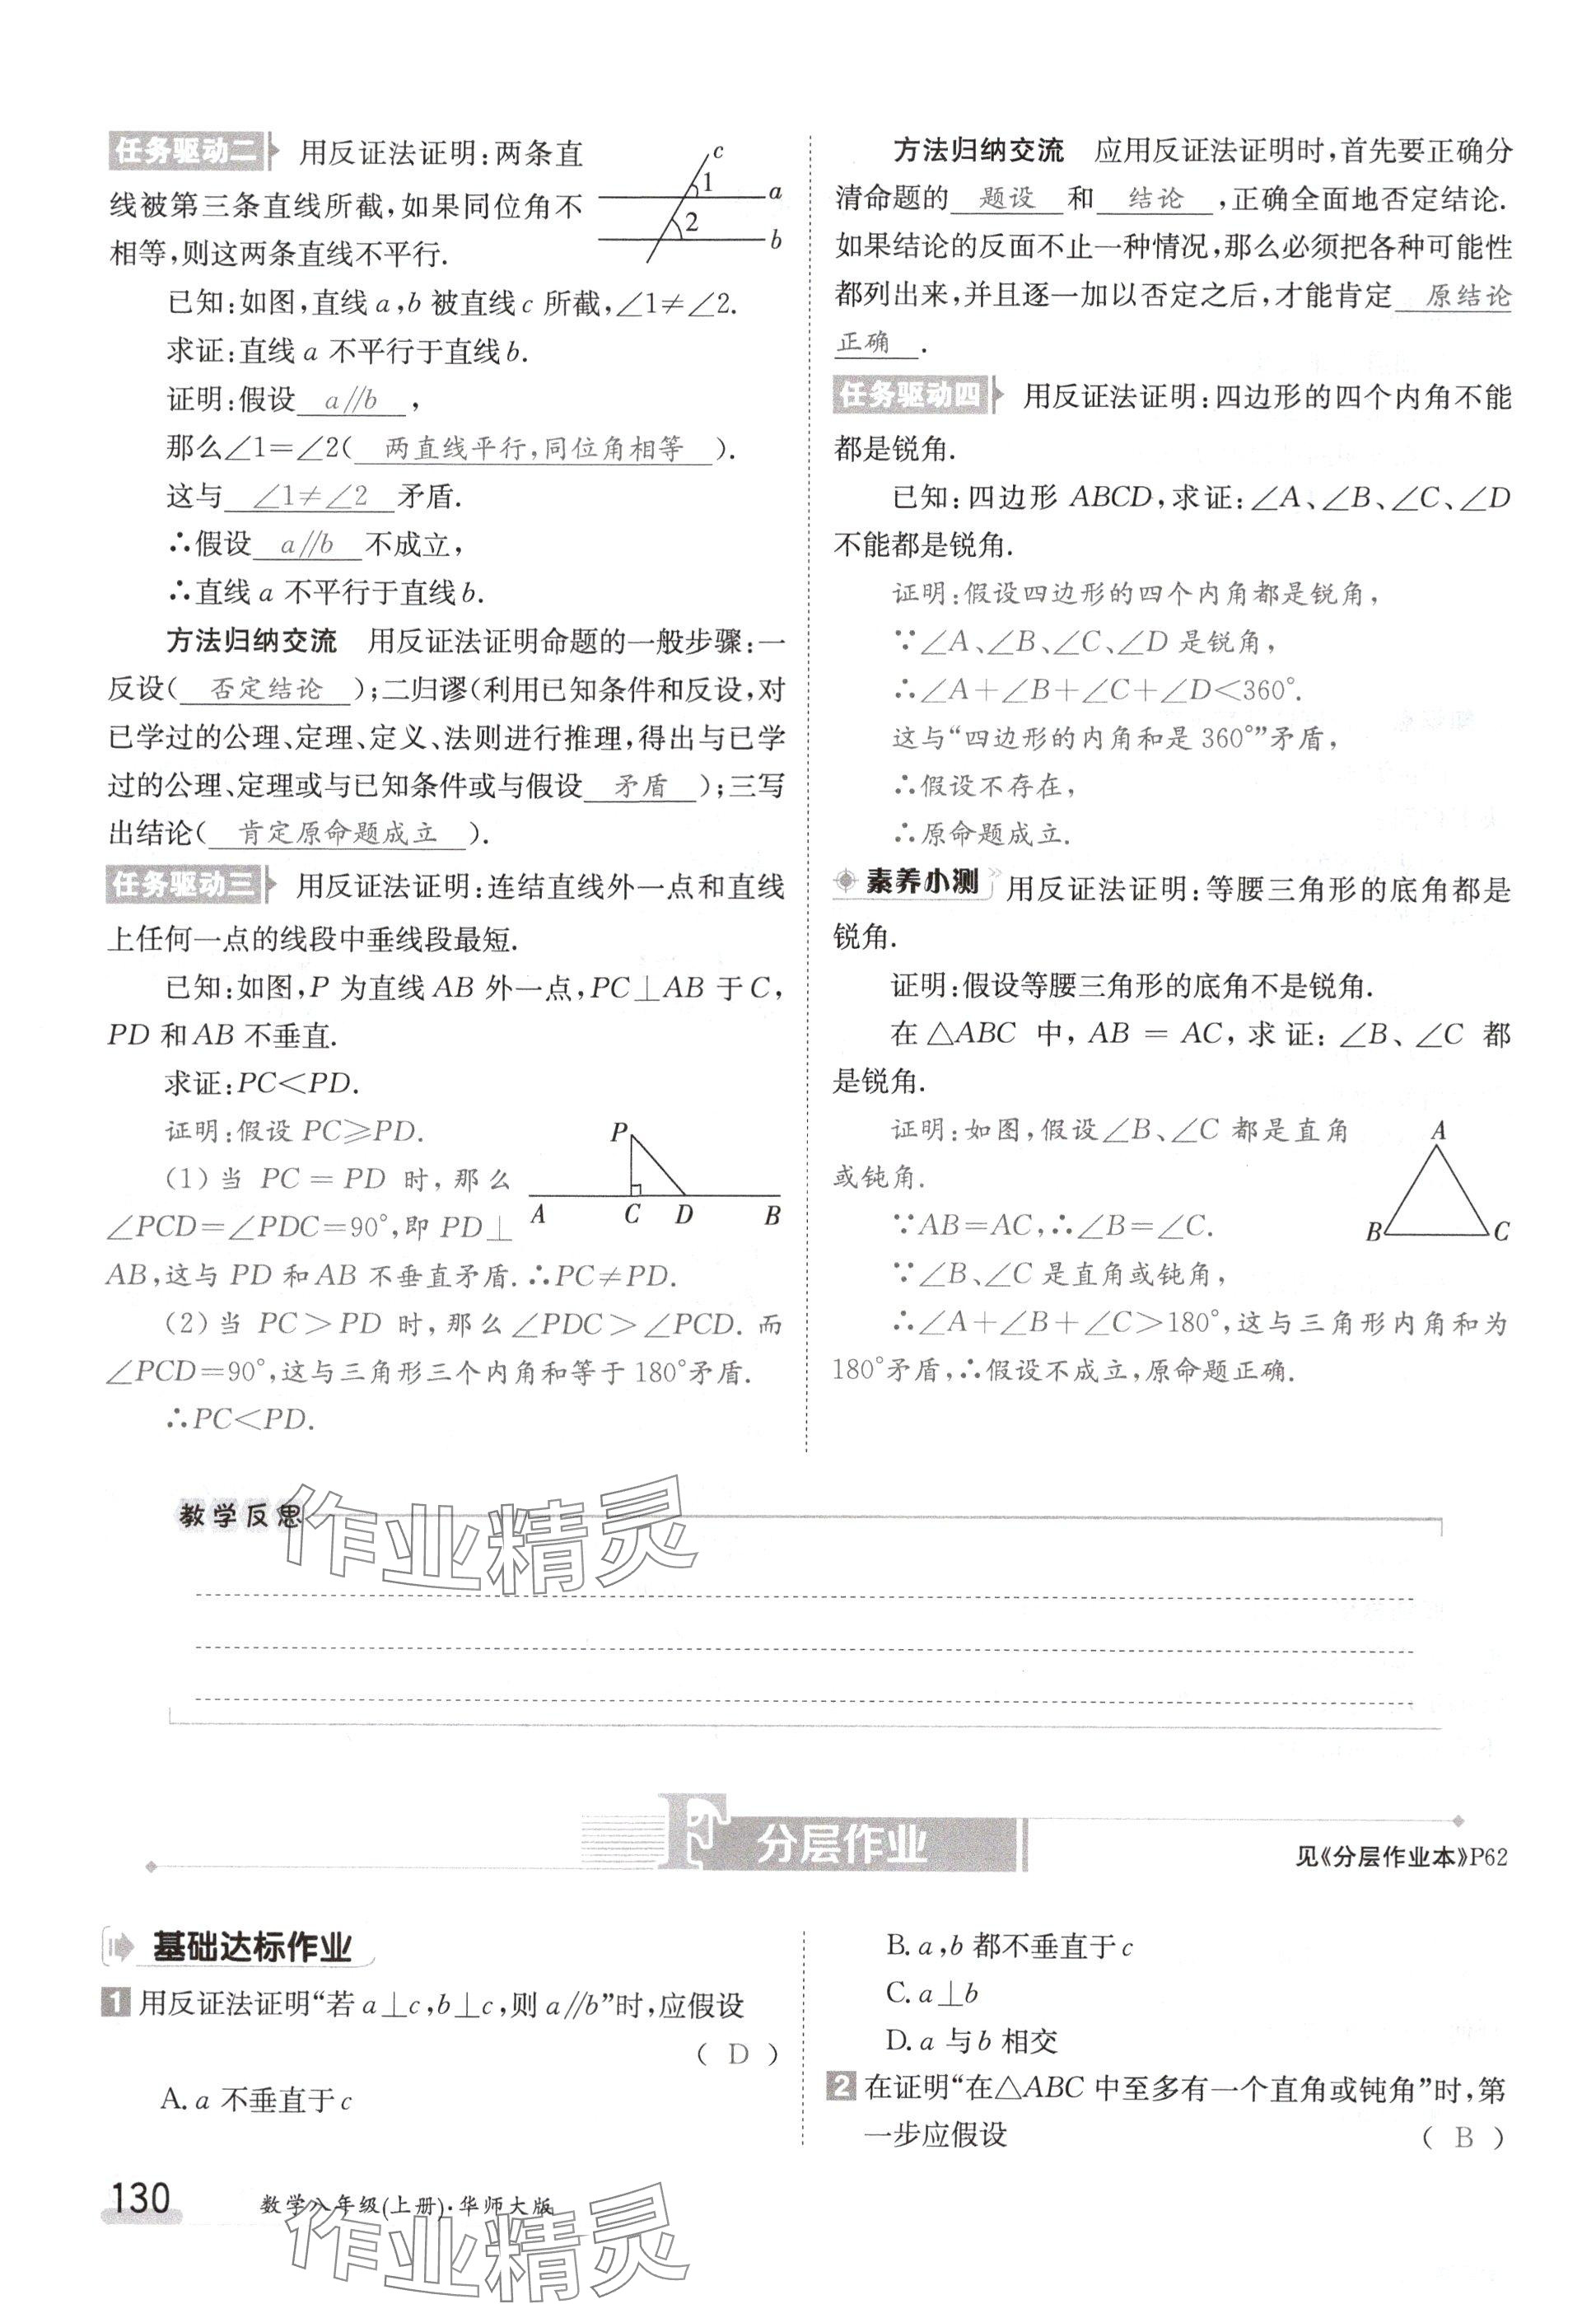 任务驱动二 用反证法证明:两条直
线被第三条直线所截,如果同位角不
相等,则这两条直线不平行.
c
1
a
2
b
已知:如图,直线a,b被直线c所截,∠1≠∠2.
求证:直线a 不平行于直线b.
证明:假设 a∥b ,
那么∠1=∠2( 两直线平行,同位角相等 ).
这与 ∠1≠∠2 矛盾.
∴假设 a∥b 不成立,
∴直线a 不平行于直线b.
方法归纳交流 用反证法证明命题的一般步骤:一
反设( 否定结论 );二归谬(利用已知条件和反设,对
已学过的公理、定理、定义、法则进行推理,得出与已学
过的公理、定理或与已知条件或与假设 矛盾 );三写
出结论( 肯定原命题成立 ).
任务驱动三 用反证法证明:连结直线外一点和直线
上任何一点的线段中垂线段最短.
已知:如图,P 为直线AB 外一点,PC⊥AB 于C,
PD 和AB 不垂直.
求证:PC<PD.
证明:假设 PC≥PD.
(1)当 PC = PD 时,那么
∠PCD=∠PDC=90°,即 PD⊥
AB,这与 PD 和AB 不垂直矛盾.∴PC≠PD.
P
A C D B
(2)当 PC>PD 时,那么∠PDC>∠PCD.而
∠PCD=90°,这与三角形三个内角和等于180°矛盾.
∴PC<PD.
方法归纳交流 应用反证法证明时,首先要正确分
清命题的 题设 和 结论 ,正确全面地否定结论.
如果结论的反面不止一种情况,那么必须把各种可能性
都列出来,并且逐一加以否定之后,才能肯定 原结论
正确 .
任务驱动四 用反证法证明:四边形的四个内角不能
都是锐角.
已知:四边形 ABCD,求证:∠A、∠B、∠C、∠D
不能都是锐角.
证明:假设四边形的四个内角都是锐角,
∵∠A、∠B、∠C、∠D 是锐角,
∴∠A+∠B+∠C+∠D<360°.
这与“四边形的内角和是360°”矛盾,
∴假设不存在,
∴原命题成立.
素养小测 用反证法证明:等腰三角形的底角都是
锐角.
证明:假设等腰三角形的底角不是锐角.
在△ABC 中, AB = AC, 求证: ∠B、∠C 都
是锐角.
证明:如图,假设∠B、∠C 都是直角
或钝角.
∵AB=AC,∴∠B=∠C.
A
B C
∵∠B、∠C 是直角或钝角,
∴∠A+∠B+∠C>180°,这与三角形内角和为
180°矛盾,∴假设不成立,原命题正确.
教学反思
作业精灵
F 分层作业
见《分层作业本》P62
基础达标作业
1 用反证法证明“若a⊥c,b⊥c,则a∥b”时,应假设
( D )
A. a 不垂直于c
B. a,b 都不垂直于c
C. a⊥b
D. a 与b 相交
2 在证明“在△ABC 中至多有一个直角或钝角”时,第
一步应假设 ( B )
130 数学八年级(上册)·华师大版
作业精灵